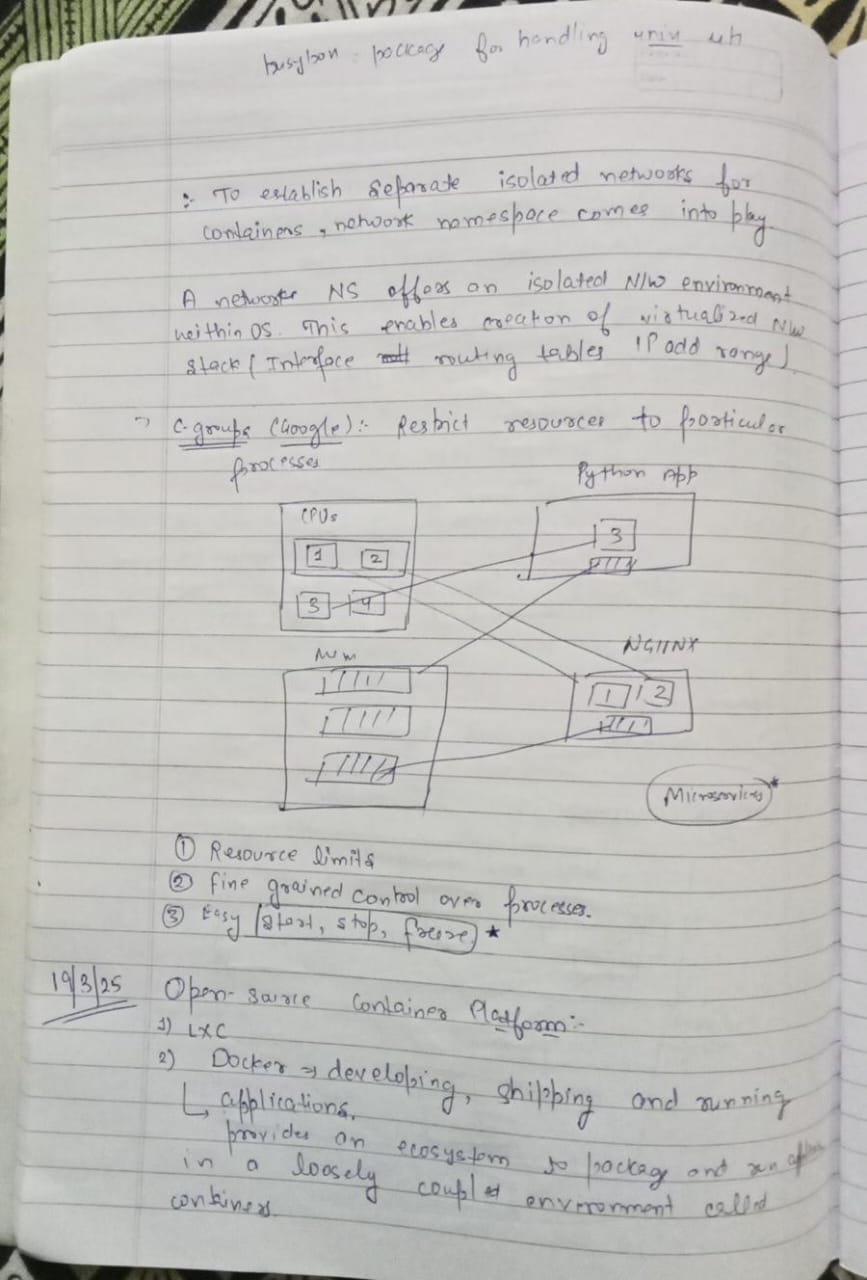 busybox package for handling unix uti
:- To establish separate isolated networks for
containers, network namespace comes into play
A network NS offers an isolated N/W environment
within OS. This enables creation of virtualized N/W
stack ( Interface routing tables IP add range).
C-groups (Google):- Restrict resources to particular
processes
Python App
CPUs
3
1 2
3 4
NGINX
Mem
1 2
Microservices *
① Resource limits
② fine grained control over processes.
③ Easy start, stop, freeze ★
19/3/25 Open-source Container Platform:-
1) LXC
2) Docker → developing, shipping and running
↳ applications.
provides an ecosystem to package and run
in a loosely coupled environment called
containers.